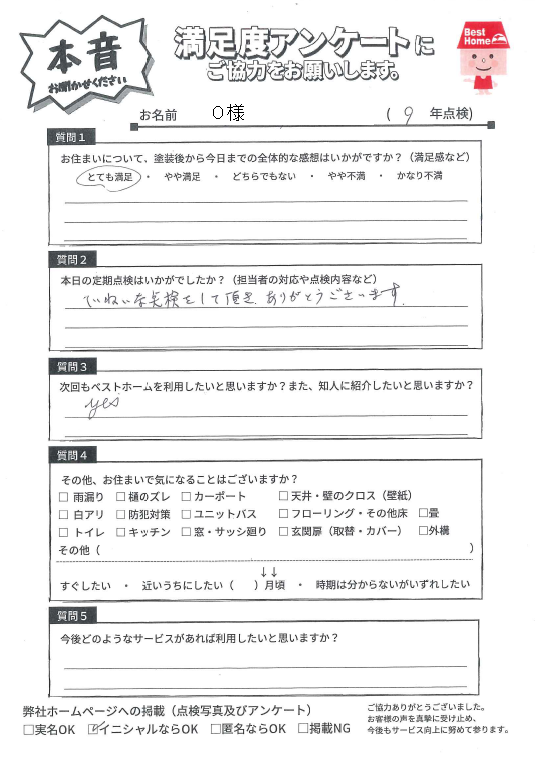 本音
お聞かせください
満足度アンケートに
ご協力をお願いします。
Best
Home
お名前 O様 ( 9 年点検)
質問1
お住まいについて、塗装後から今日までの全体的な感想はいかがですか？（満足感など）
とても満足 ・ やや満足 ・ どちらでもない ・ やや不満 ・ かなり不満
質問2
本日の定期点検はいかがでしたか？（担当者の対応や点検内容など）
ていねいな点検をして頂き、ありがとうございます。
質問3
次回もベストホームを利用したいと思いますか？また、知人に紹介したいと思いますか？
yes
質問4
その他、お住まいで気になることはございますか？
□ 雨漏り □ 樋のズレ □ カーポート □ 天井・壁のクロス（壁紙）
□ 白アリ □ 防犯対策 □ ユニットバス □ フローリング・その他床 □畳
□ トイレ □ キッチン □ 窓・サッシ廻り □ 玄関扉（取替・カバー） □外構
その他（ ）
↓↓
すぐしたい ・ 近いうちにしたい（ ）月頃 ・ 時期は分からないがいずれしたい
質問5
今後どのようなサービスがあれば利用したいと思いますか？
弊社ホームページへの掲載（点検写真及びアンケート）
□実名OK ☑イニシャルならOK □匿名ならOK □掲載NG
ご協力ありがとうございました。
お客様の声を真摯に受け止め、
今後もサービス向上に努めて参ります。